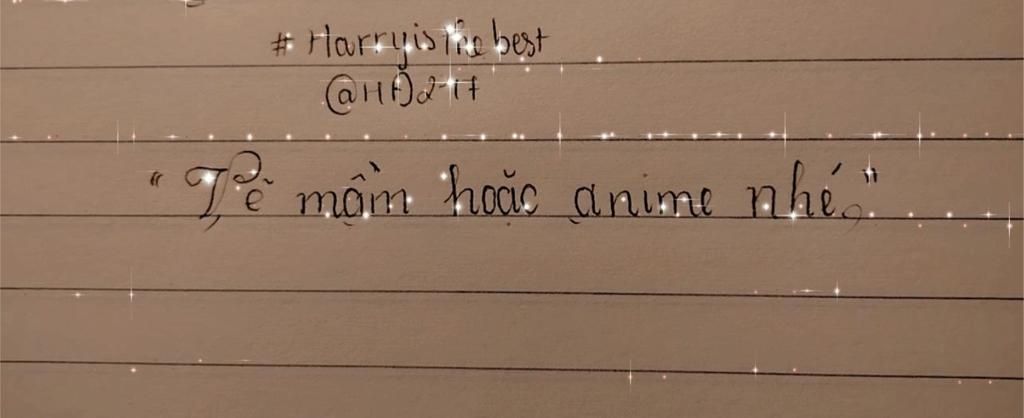 # Harryisthebest
"Tẻ mầm hoặc anime nhé."